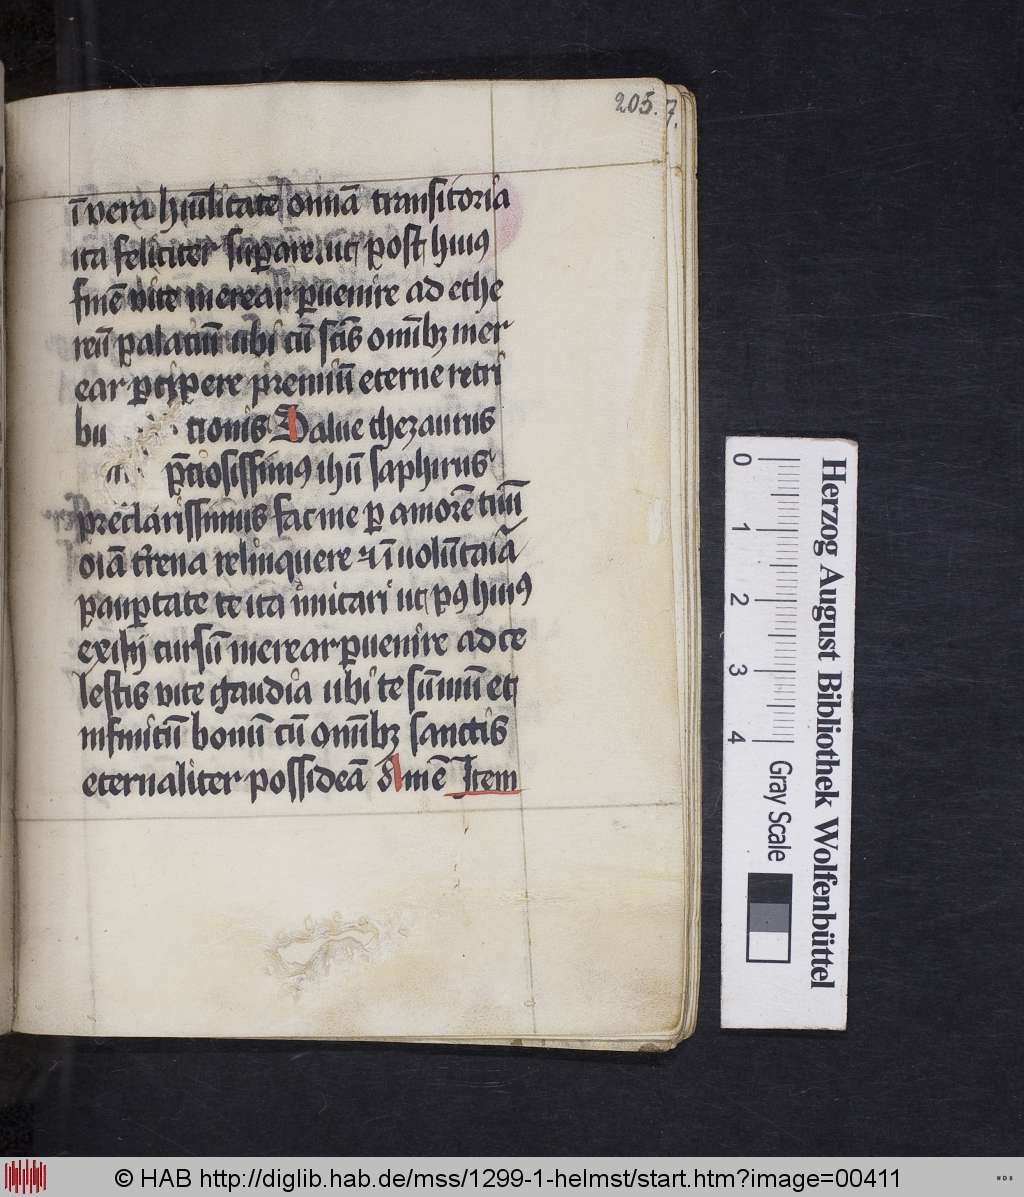 205.
7.
ī vera hūilitate om̄ia transitoria
ita feliciter suꝑare ut post huiꝰ
finē vite merear ꝑuenire ad ethe
reū palatiū ubi cū sc̄is om̄ibꝫ mer
ear ꝑcipere premiū eterne retri
bu tionis Salue thezaurus
p̄tiosissimꝰ ihū saphirus
preclarissimus fac me ꝑ amorē tuū
oīa t̄rena relinquere ⁊ ī uolūtaīa
pauꝑtate te ita imitari ut pꝰ huiꝰ
exilij cursū merear ꝑuenire ad ce
lestis vite gaudia ubi te sūmū et
infinitū bonū cū om̄ibꝫ sanctis
eternaliter possideā Amē Item
Herzog August Bibliothek Wolfenbüttel
0 1 2 3 4 Gray Scale
© HAB http://diglib.hab.de/mss/1299-1-helmst/start.htm?image=00411